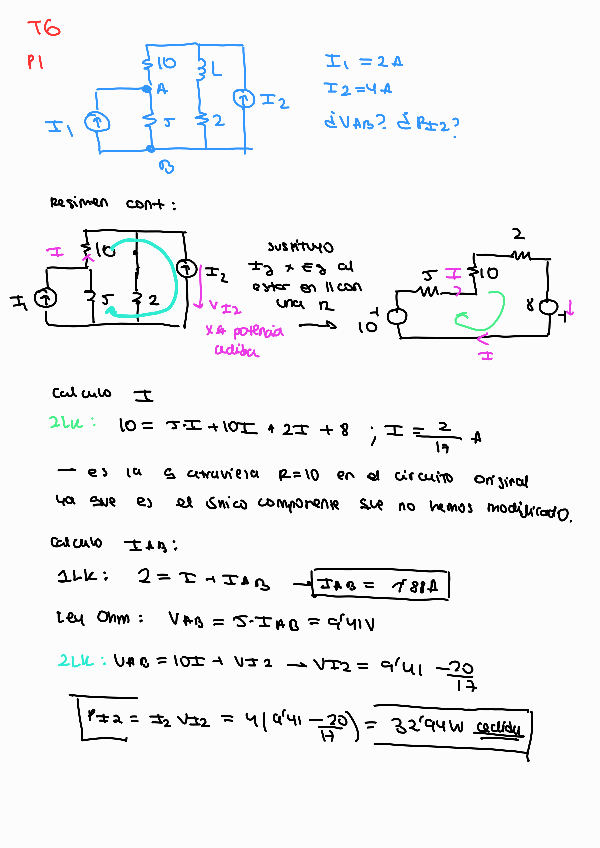 T6
P1
10
L
A
I1
5
2
I2
B
I1 = 2A
I2 = 4A
¿VAB? ¿PI2?
Regimen cont:
I
10
I1
5
2
I2
VI2
x A potencia
cedida
sustituyo
Ig x Eg al
estar en || con
una R
2
5
I
10
10
+
8
+
I
Calculo I
2LK: 10 = 5·I + 10I + 2I + 8 ; I = 2/17 A
→ es la q atraviesa R=10 en el circuito original
ya que es el único componente que no hemos modificado.
Calculo IAB:
1LK: 2 = I + IAB → IAB = 1'88A
Ley Ohm: VAB = 5·IAB = 9'41V
2LK: VAB = 10I + VI2 → VI2 = 9'41 - 20/17
PI2 = I2 VI2 = 4(9'41 - 20/17) = 32'94W cedida